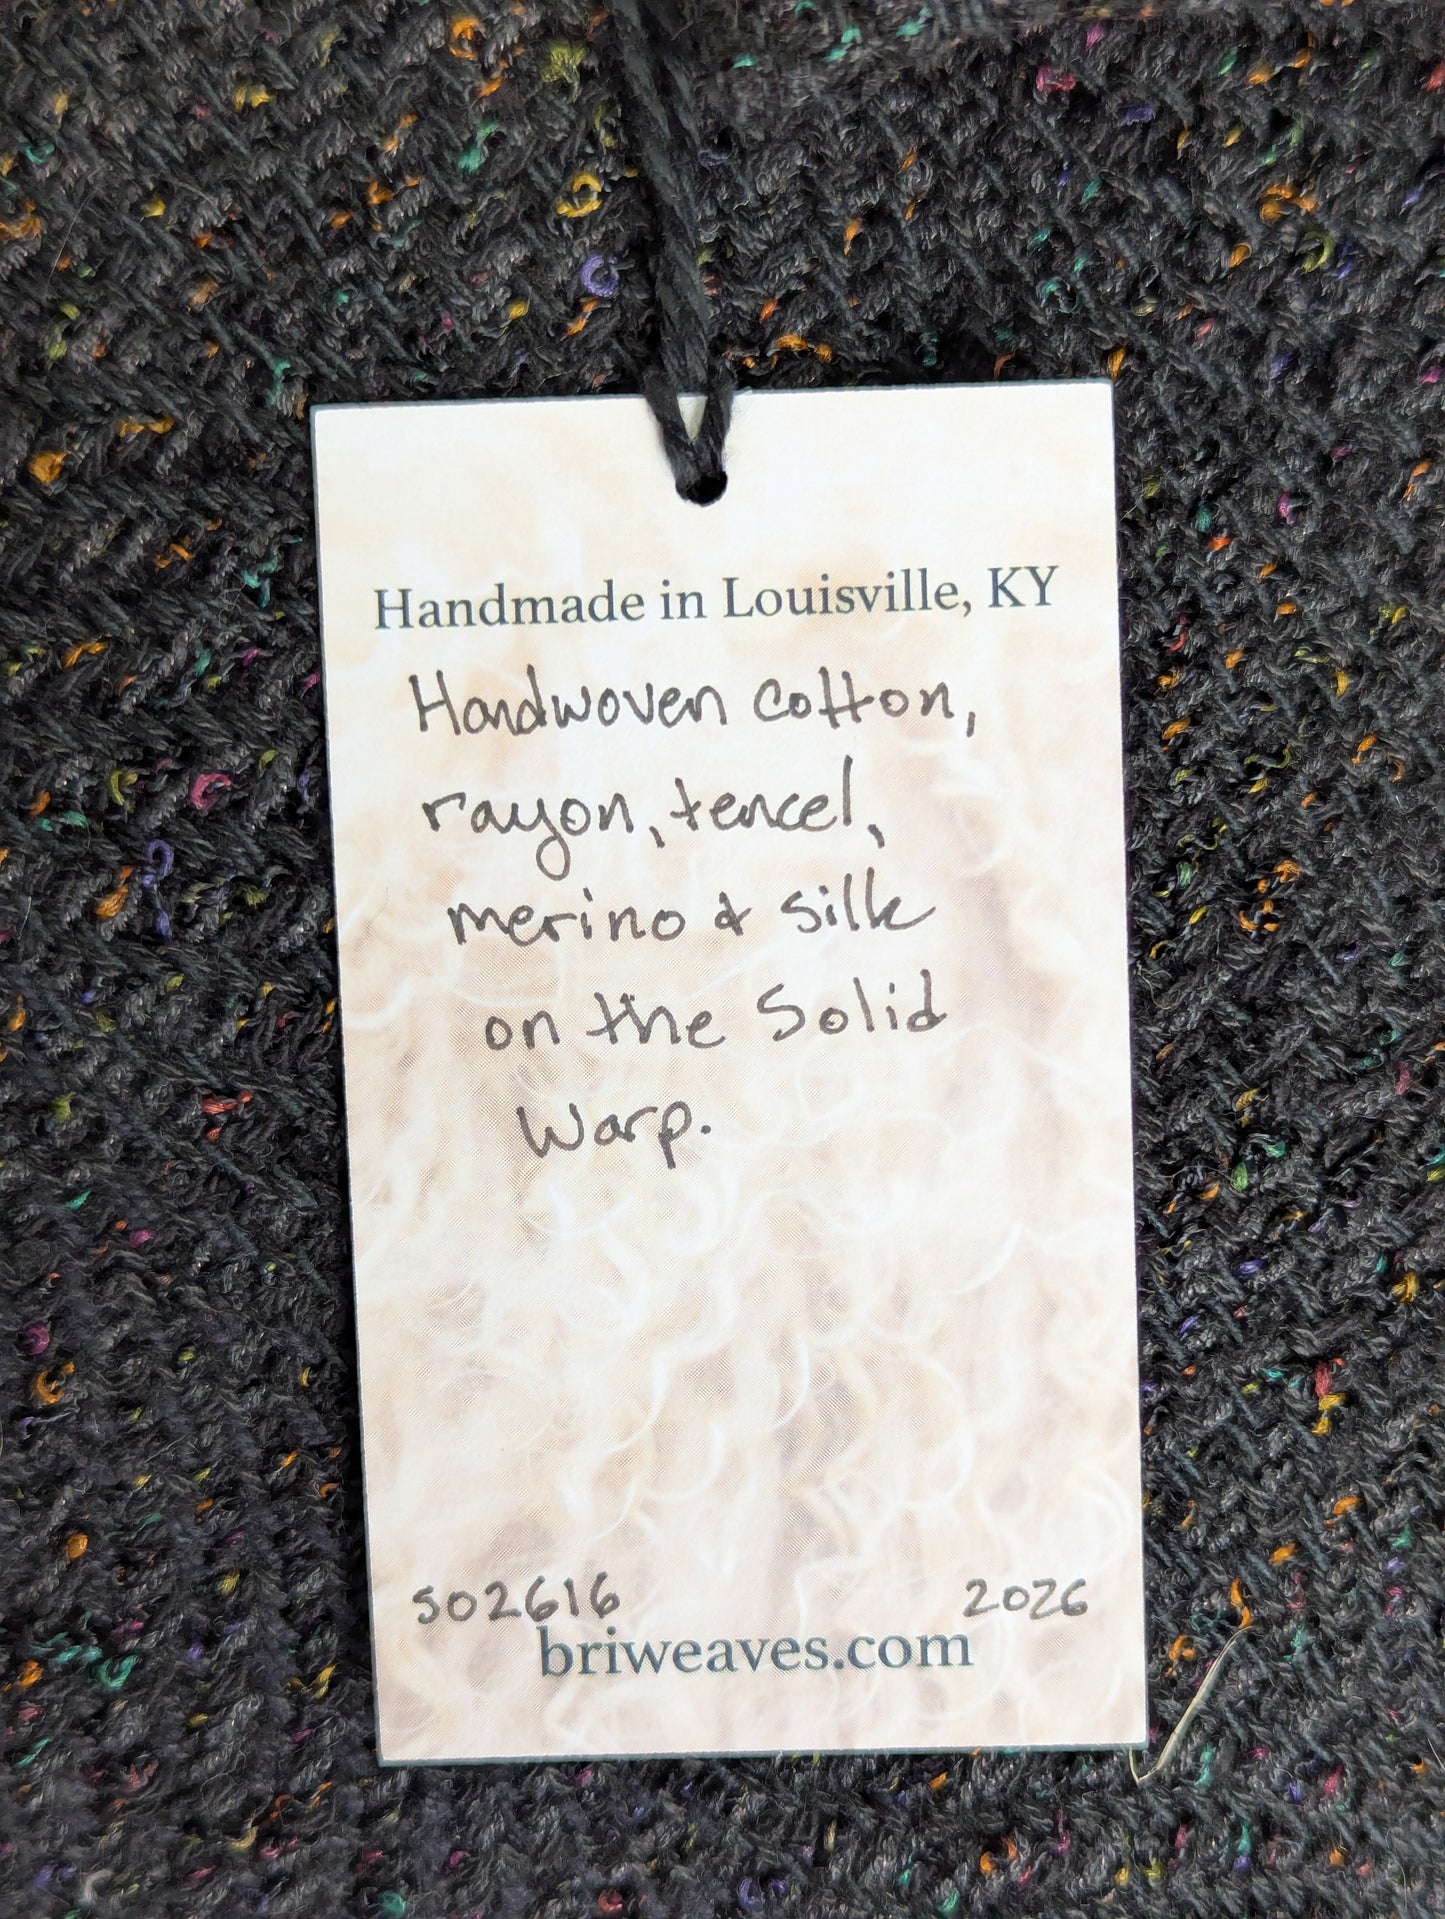 Handmade in Louisville, KY
Handwoven cotton,
rayon, tencel,
merino & silk
on the Solid
Warp.
S02616 2026
briweaves.com